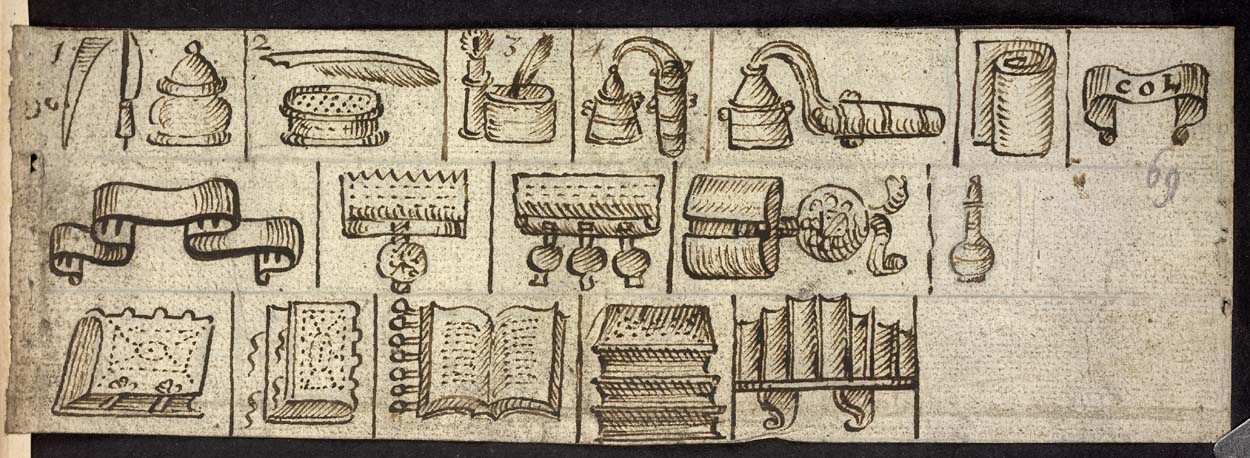 1 2 3 4
COL
69